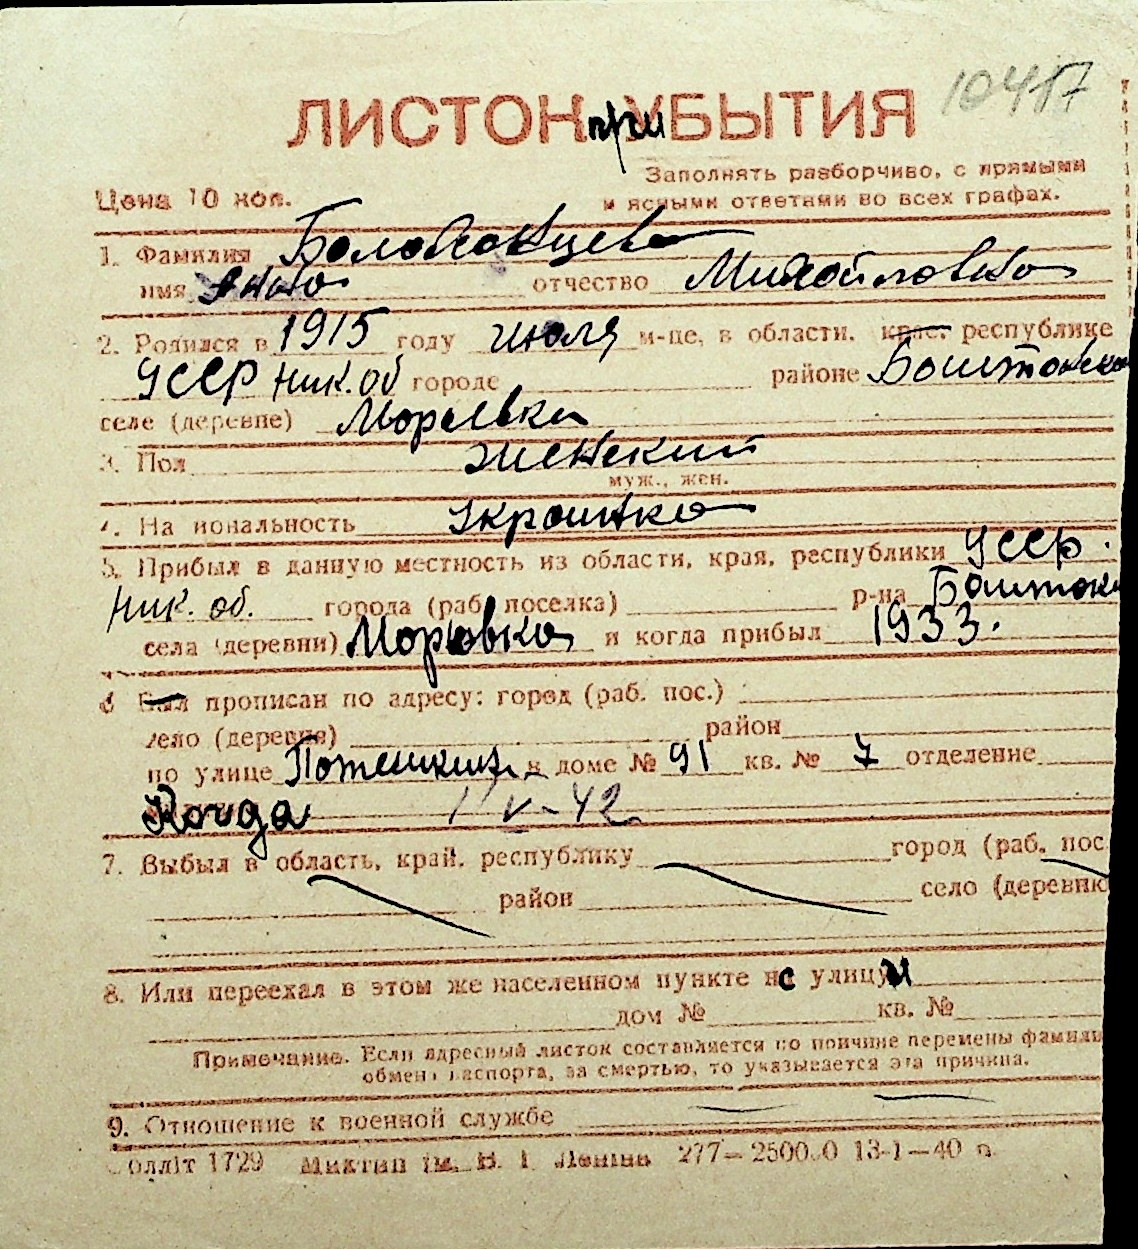 10417
ЛИСТОК при УБЫТИЯ
Заполнять разборчиво, с прямыми
Цена 10 коп. и ясными ответами во всех графах.
1. Фамилия
имя Анна отчество Михайловна
2. Родился в 1915 году июля м-це, в области, крае, республике
УССР Ник. об городе районе Баштанско
селе (деревне) Мореевка
3. Пол женский
муж., жен.
4. Национальность Украинка
5. Прибыл в данную местность из области, края, республики УССР.
Ник. об. города (раб. поселка) р-на Баштанк
села (деревни) и когда прибыл 1933.
6 Был прописан по адресу: город (раб. пос.)
село (деревне) район
по улице Потемкин. в доме № 91 кв. № 7 отделение
Когда 1 V-42
7. Выбыл в область, край, республику город (раб. пос
район село (деревню
8. Или переехал в этом же населенном пункте с улицы
дом № кв. №
Примечание. Если адресный листок составляется по причине перемены фамилии
обмена паспорта, за смертью, то указывается эта причина.
9. Отношение к военной службе
олліт 1729 Миктип ім. В. І. Леніна 277—2500 0 13-1—40 п.